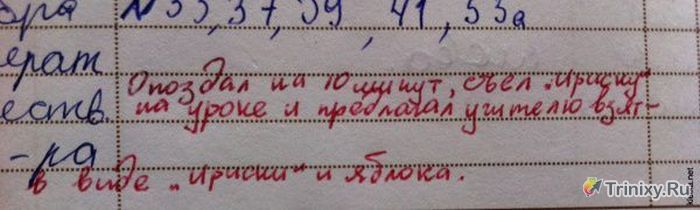 ора №35, 37, 39, 41, 53а
ерат
Опоздал на 10 минут, съел „Ириску"
еств. на уроке и предлагал учителю взят-
-ра
в виде „Ириски" и яблока.
Trinixy.Ru